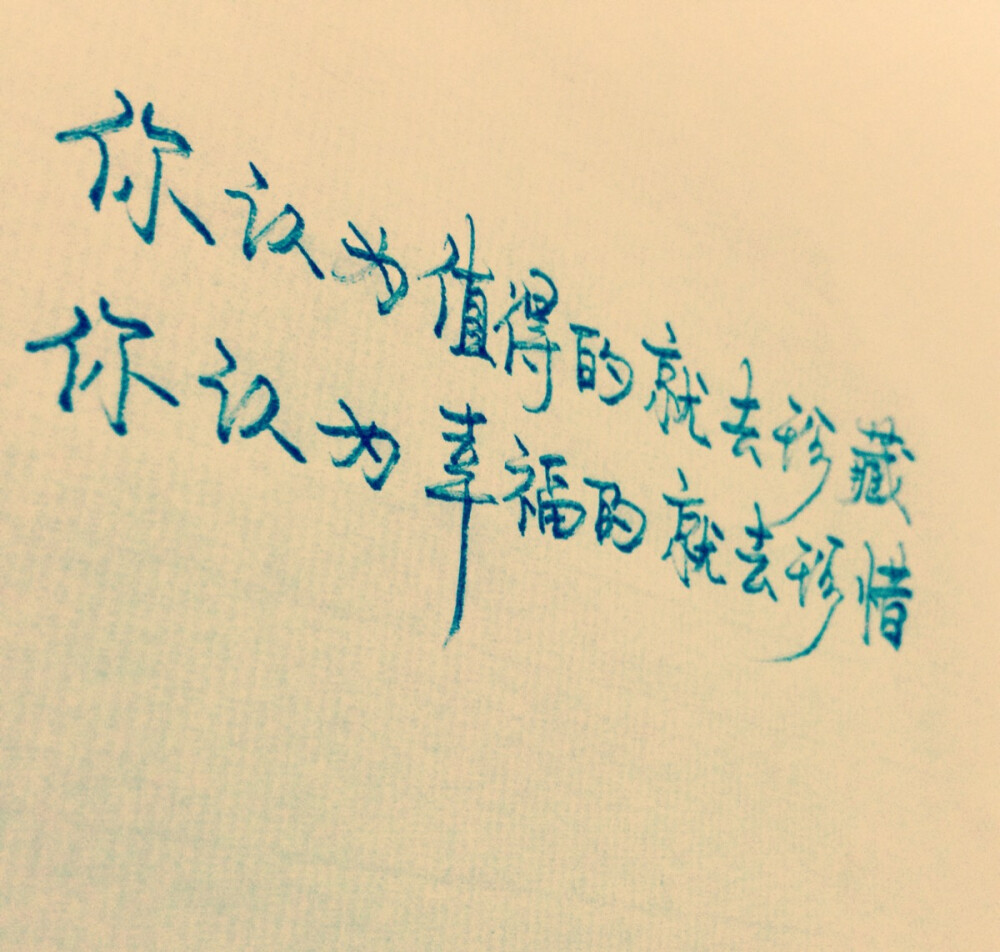 你认为值得的就去珍藏
你认为幸福的就去珍惜